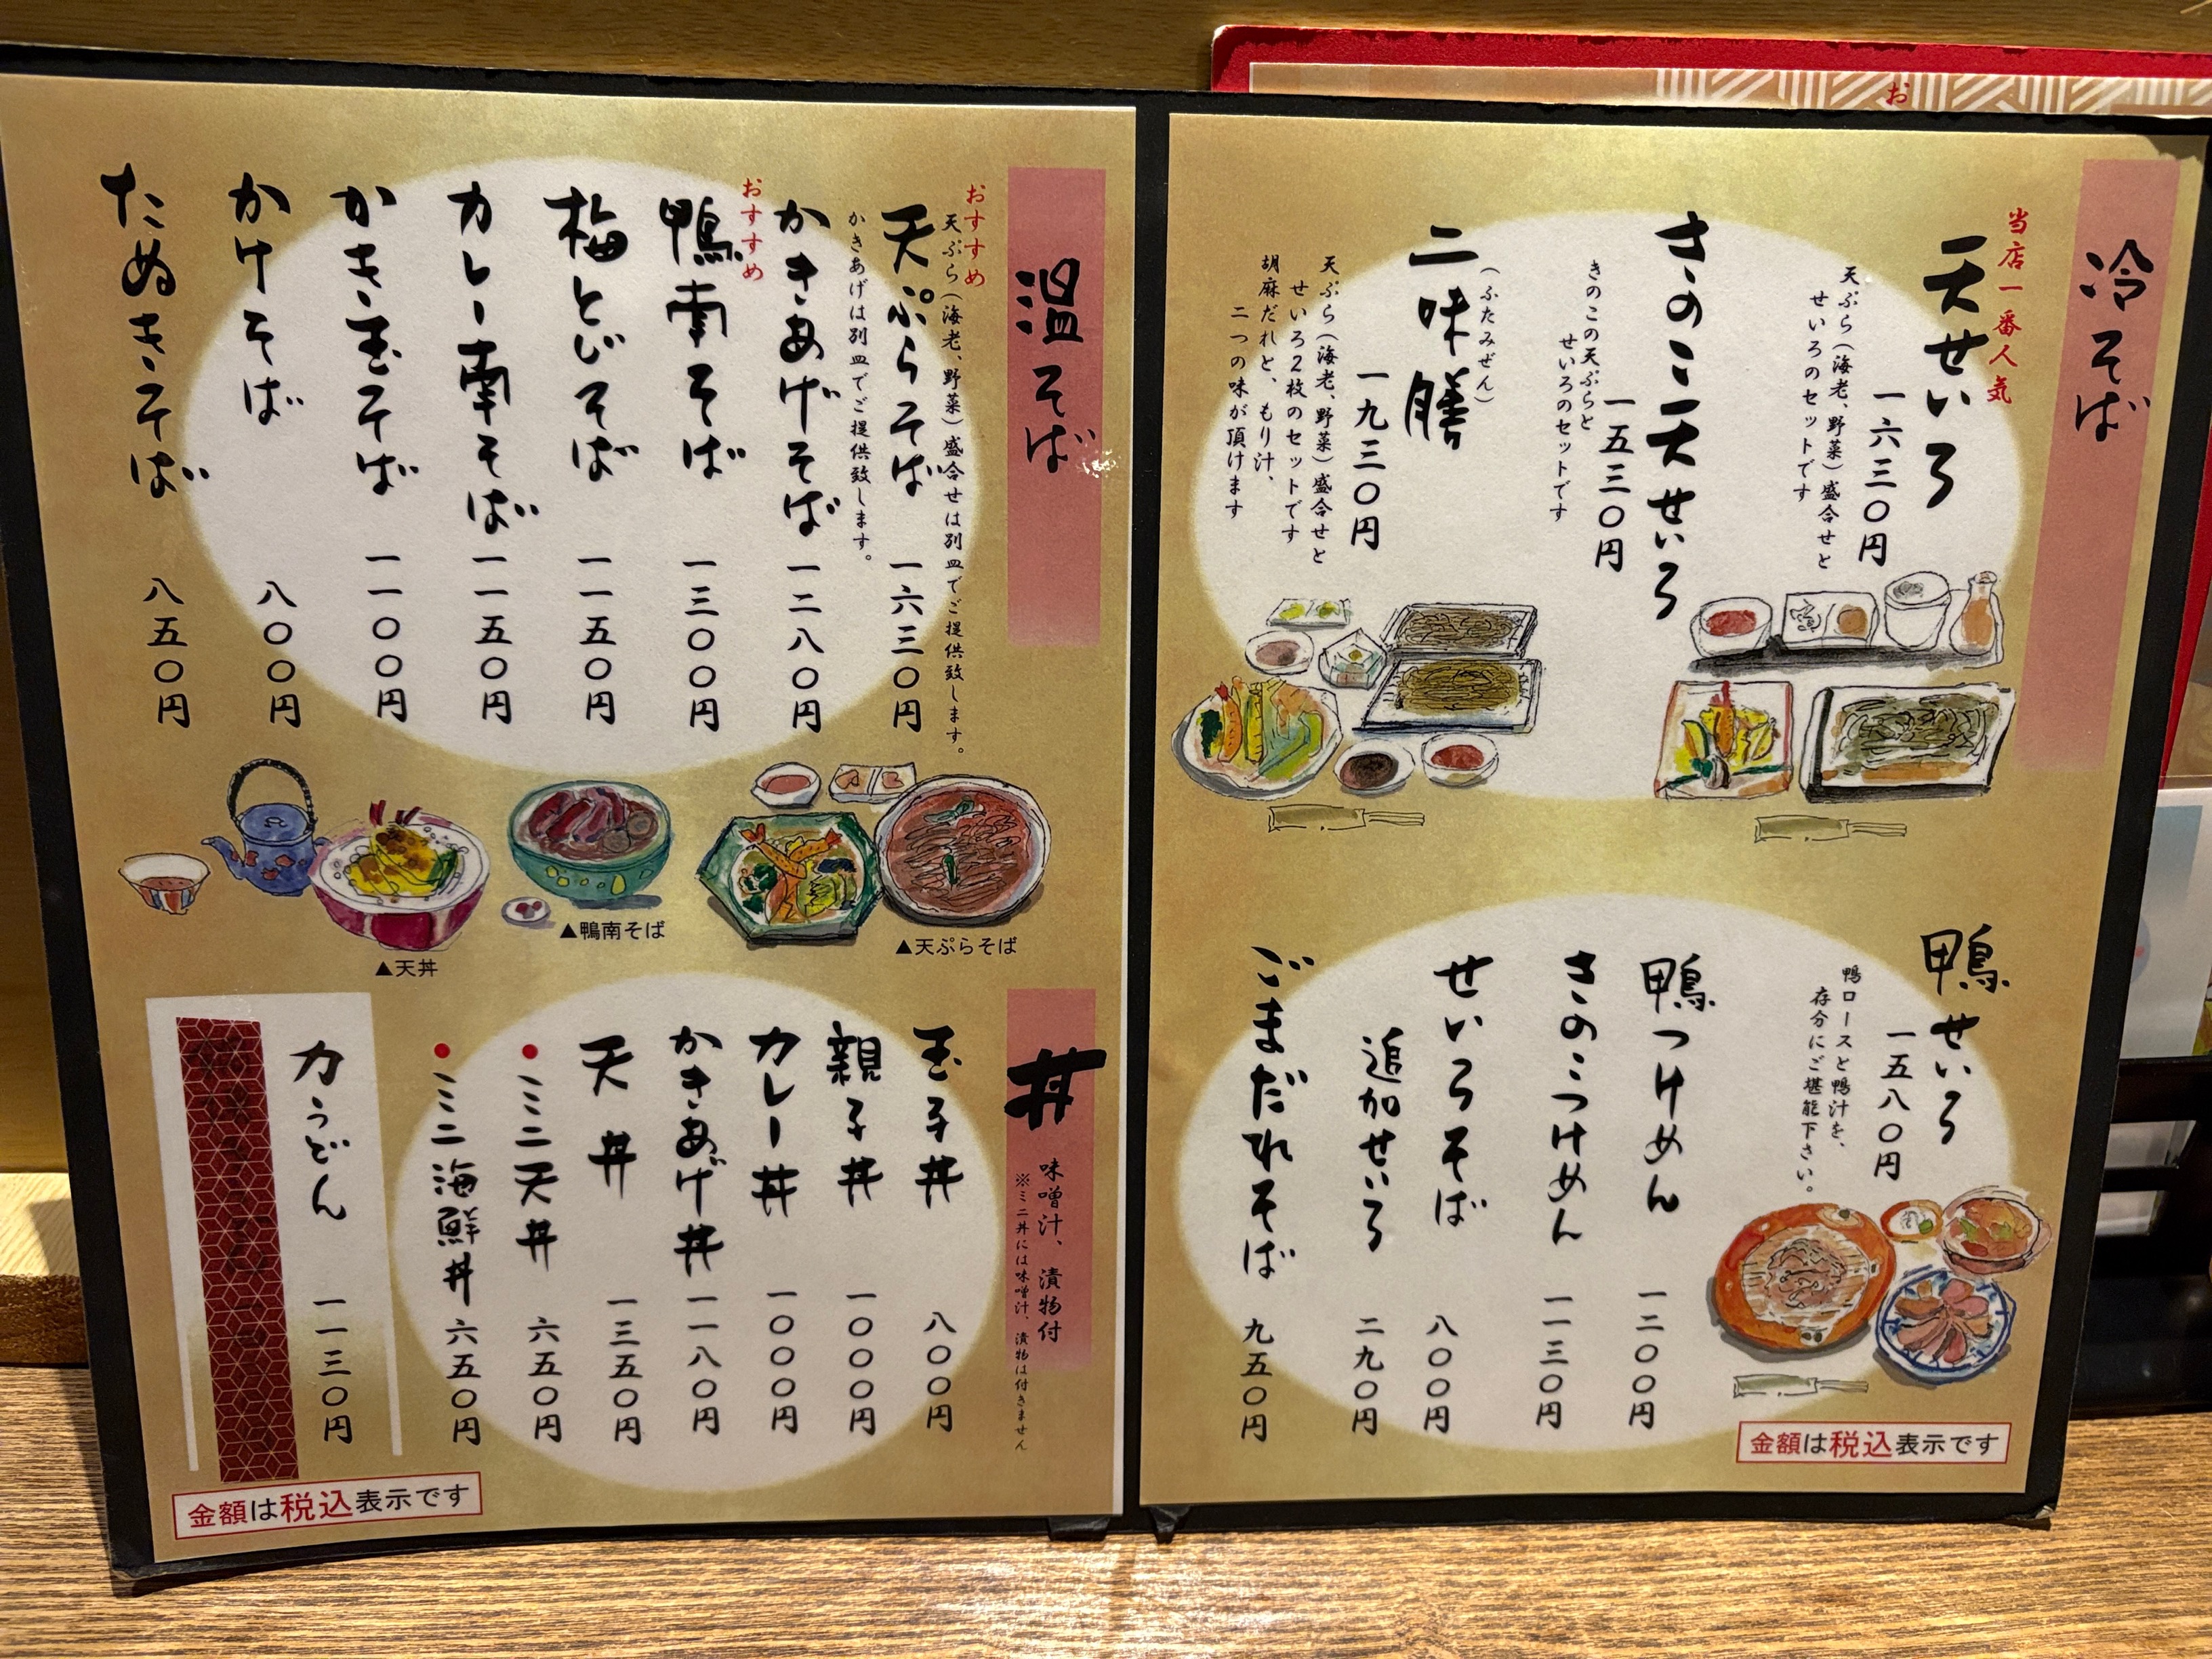 お
冷そば
当店一番人気
天せいろ
一六三〇円
天ぷら(海老、野菜)盛合せと
せいろのセットです
きのこ天せいろ
一五三〇円
きのこの天ぷらと
せいろのセットです
二味膳
(ふたみぜん)
一九三〇円
天ぷら(海老、野菜)盛合せと
せいろ2枚のセットです
胡麻だれと、もり汁、
二つの味が頂けます
鴨せいろ
一五八〇円
鴨ロースと鴨汁を、
存分にご堪能下さい。
鴨つけめん 一二〇〇円
きのこつけめん 一一三〇円
せいろそば 八〇〇円
追加せいろ 二九〇円
ごまだれそば 九五〇円
金額は税込表示です
温そば
おすすめ
天ぷらそば 一六三〇円
天ぷら(海老、野菜)盛合せは別皿でご提供致します。
かきあげそば 一二八〇円
かきあげは別皿でご提供致します。
おすすめ
鴨南そば 一三〇〇円
梅とじそば 一一五〇円
カレー南そば 一一五〇円
かき玉そば 一一〇〇円
かけそば 八〇〇円
たぬきそば 八五〇円
▲天ぷらそば
▲鴨南そば
▲天丼
丼
味噌汁、漬物付
※ミニ丼には味噌汁、漬物は付きません
玉子丼 八〇〇円
親子丼 一〇〇〇円
カレー丼 一〇〇〇円
かきあげ丼 一一八〇円
天丼 一三五〇円
●ミニ天丼 六五〇円
●ミニ海鮮丼 六五〇円
力うどん 一一三〇円
金額は税込表示です